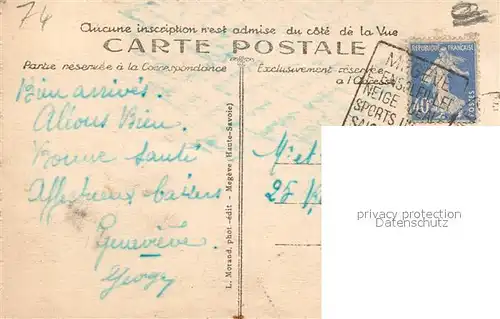 74
Aucune inscription n'est admise du côté de la Vue
CARTE POSTALE
Partie réservée à la Correspondance
Exclusivement réservée
à l'Adresse
REPUBLIQUE FRANÇAISE
POSTES
40c
MEGEVE
NEIGE
SPORTS
Bien arrivés.
Allons Bien.
Bonne Santé
Affectueux baisers
Geneviève
George
L. Morand, phot.-édit - Megève (Haute-Savoie)
M. et
25 R
privacy protection
Datenschutz